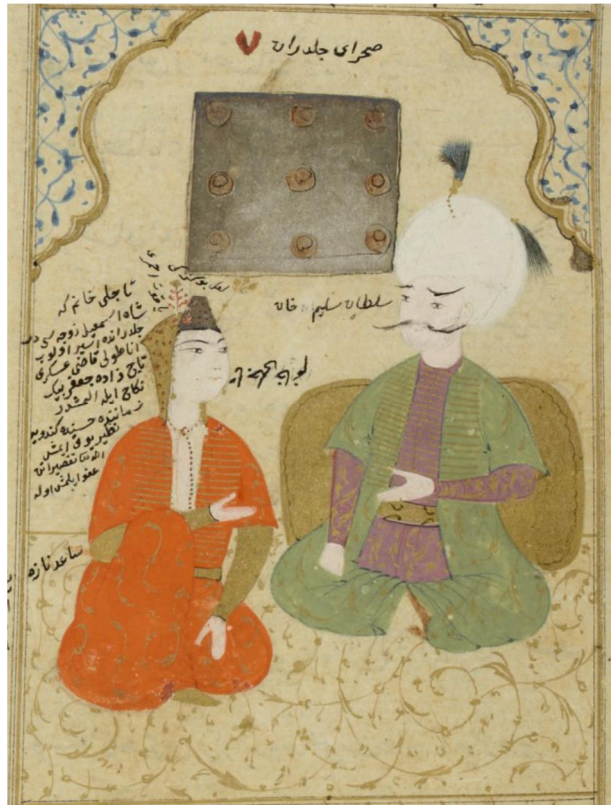 صحرای جلدران
سلطان سلیم خان
تاجلی خانم که
شاه اسمعیل زوجه سی در
جلدرانده اسیر اولوب
اناطولی قاضی عسکری
تاج زاده جعفر بیک
نکاح ایله المشدر
زماننده حسنده کندویه
نظیر یوق ایمش
الله تقصیراتن
عفو ایلمش اوله
ساعد نازه